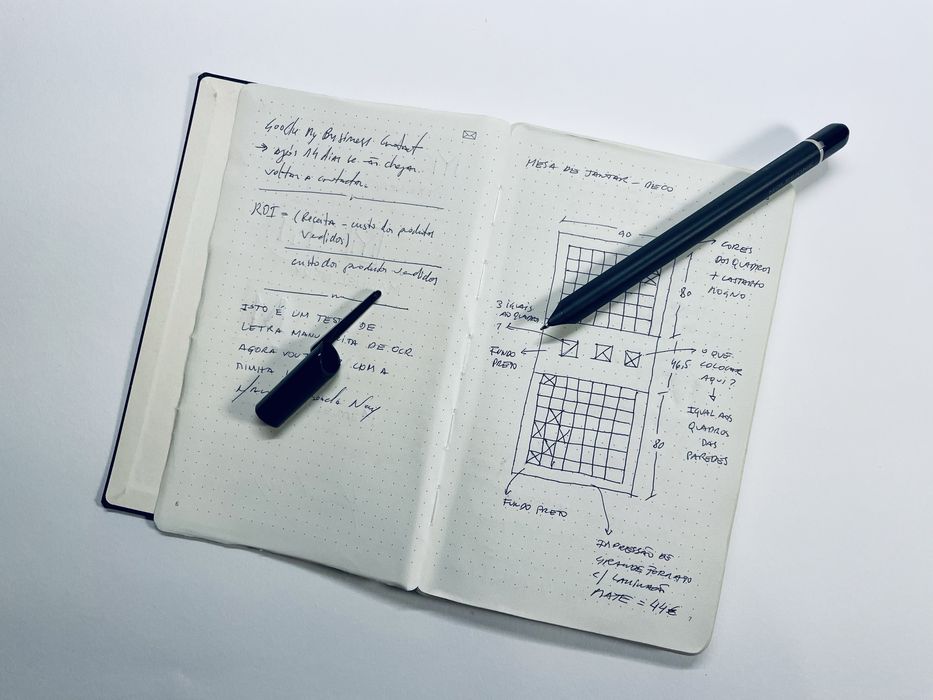 Google My Business Contact
→ após 14 dias se não chegar
voltar a contactar.
ROI = (Receita - custo dos produtos
vendidos)
custo dos produtos vendidos
ISTO É UM DE
LETRA DE OCR
AGORA COM A
MINHA
6
MESA DE JANTAR - DECO
90
CORES
DOS QUADROS
+ CASTANHO
MOGNO
80
3 IGUAIS
AO QUADRO
?
FUNDO
PRETO
46,5
O QUE
COLOCAR
AQUI?
IGUAL AOS
QUADROS
DAS
PAREDES
80
FUNDO PRETO
IMPRESSÃO DE
GRANDE FORMATO
C/ LAMINAÇÃO
MATE = 44€
7